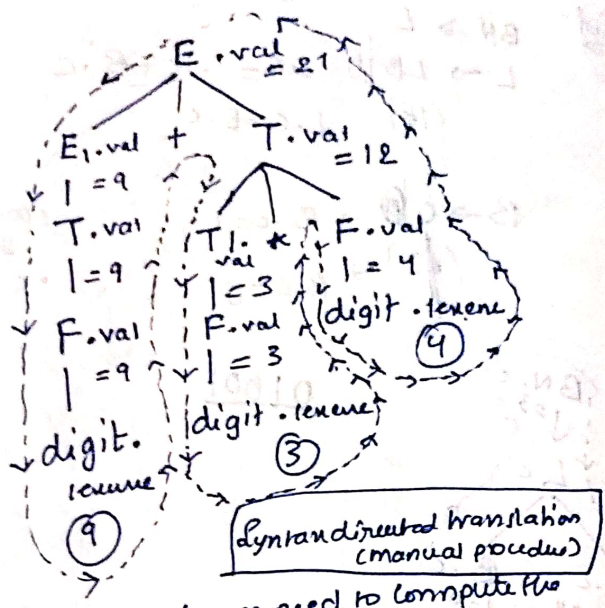 E.val = 21
E1.val + T.val = 12
| = 9
T.val T1.val * F.val
| = 9 | = 3 | = 4
F.val F.val digit.lexeme
| = 9 | = 3 ④
digit.lexeme digit.lexeme
⑨ ③
Syntax directed translation
(manual procedus)
need to compute the